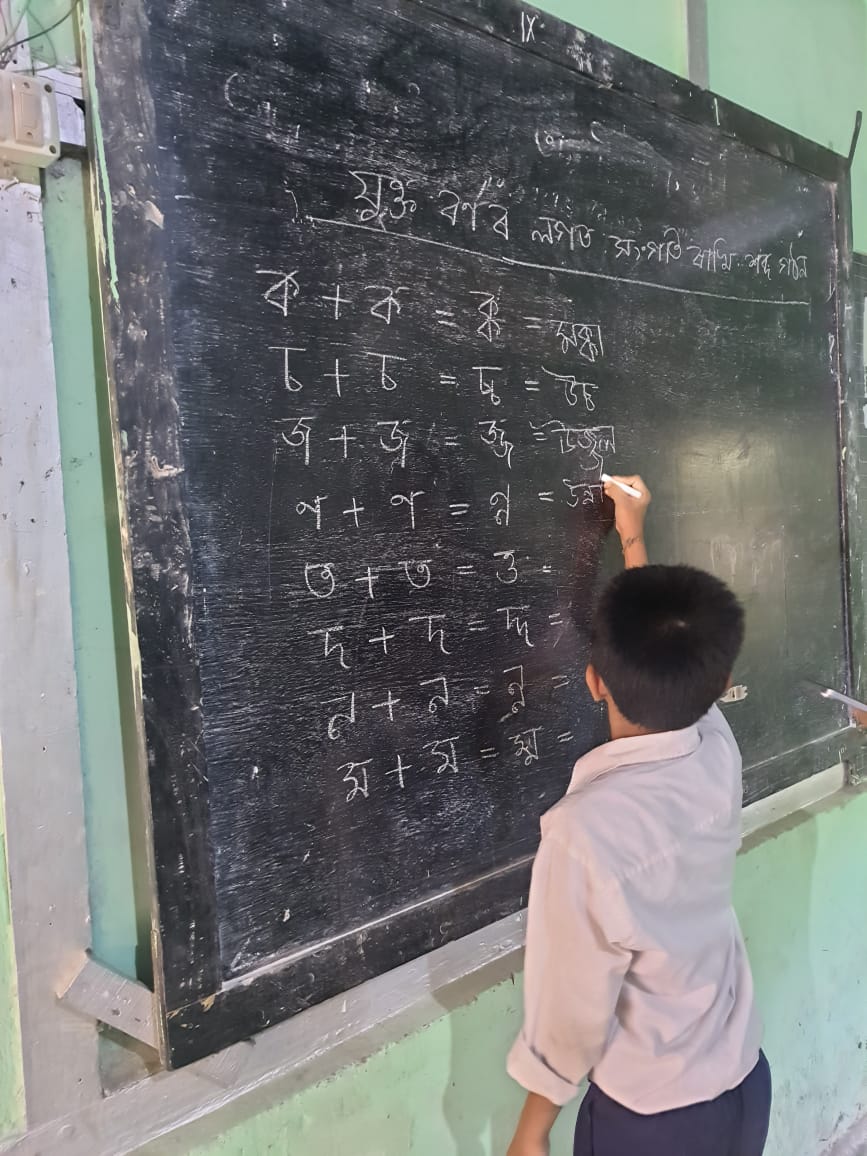 IX
যুক্ত বৰ্ণৰ লগত সংগতি ৰাখি শব্দ গঠন
ক + ক = ক্ক = মক্কা
চ + চ = চ্চ = উচ্চ
জ + জ = জ্জ = উজ্জ্বল
ণ + ণ = ণ্ণ =
ত + ত = ত্ত =
দ + দ = দ্দ =
ন + ন = ন্ন =
ম + ম = ম্ম =